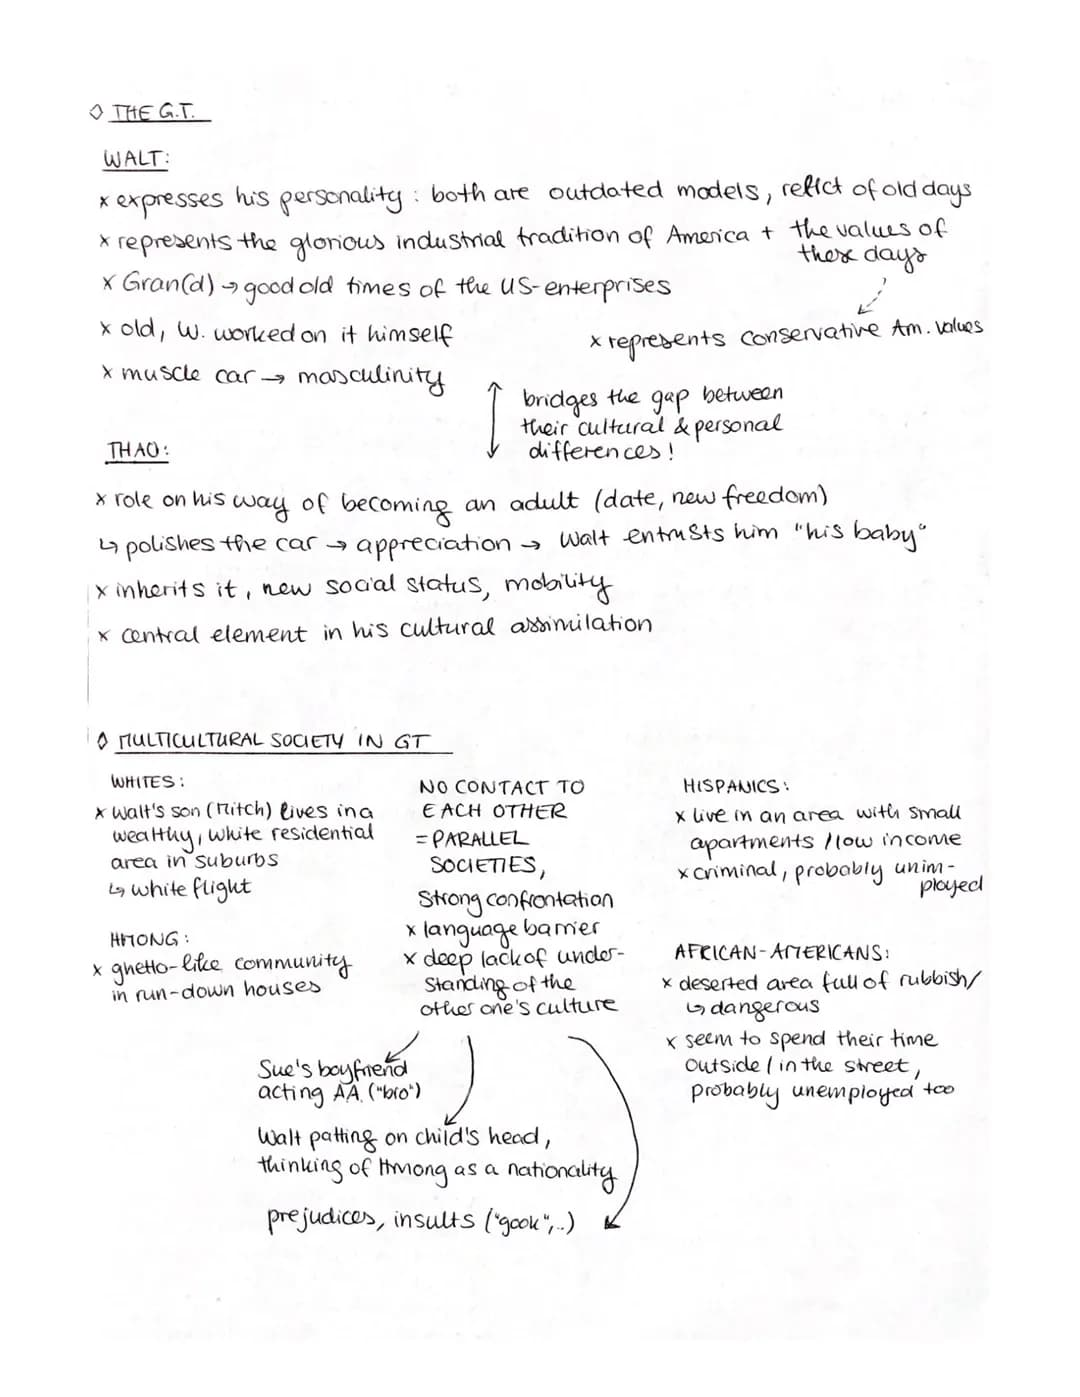 ◊ THE G.T.
WALT:
x expresses his personality : both are outdated models, relict of old days
x represents the glorious industrial tradition of America + the values of
these days
x Gran(d) → good old times of the US-enterprises
x old, W. worked on it himself
x represents conservative Am. values
x muscle car → masculinity
bridges the gap between
their cultural & personal
differences!
THAO:
x role on his way of becoming an adult (date, new freedom)
↳ polishes the car → appreciation → Walt entrusts him "his baby"
x inherits it, new social status, mobility
x central element in his cultural assimilation
◊ MULTICULTURAL SOCIETY IN GT
WHITES:
x Walt's son (Mitch) lives in a
wealthy, white residential
area in suburbs
↳ white flight
HMONG:
x ghetto-like community
in run-down houses
NO CONTACT TO
EACH OTHER
= PARALLEL
SOCIETIES,
Strong confrontation
x language barrier
x deep lack of under-
standing of the
other one's culture
HISPANICS:
x live in an area with small
apartments / low income
x criminal, probably unem-
ployed
AFRICAN-AMERICANS:
x deserted area full of rubbish/
↳ dangerous
x seem to spend their time
outside / in the street,
probably unemployed too
Sue's boyfriend
acting AA. ("bro")
Walt patting on child's head,
thinking of Hmong as a nationality
prejudices, insults ("gook",..)